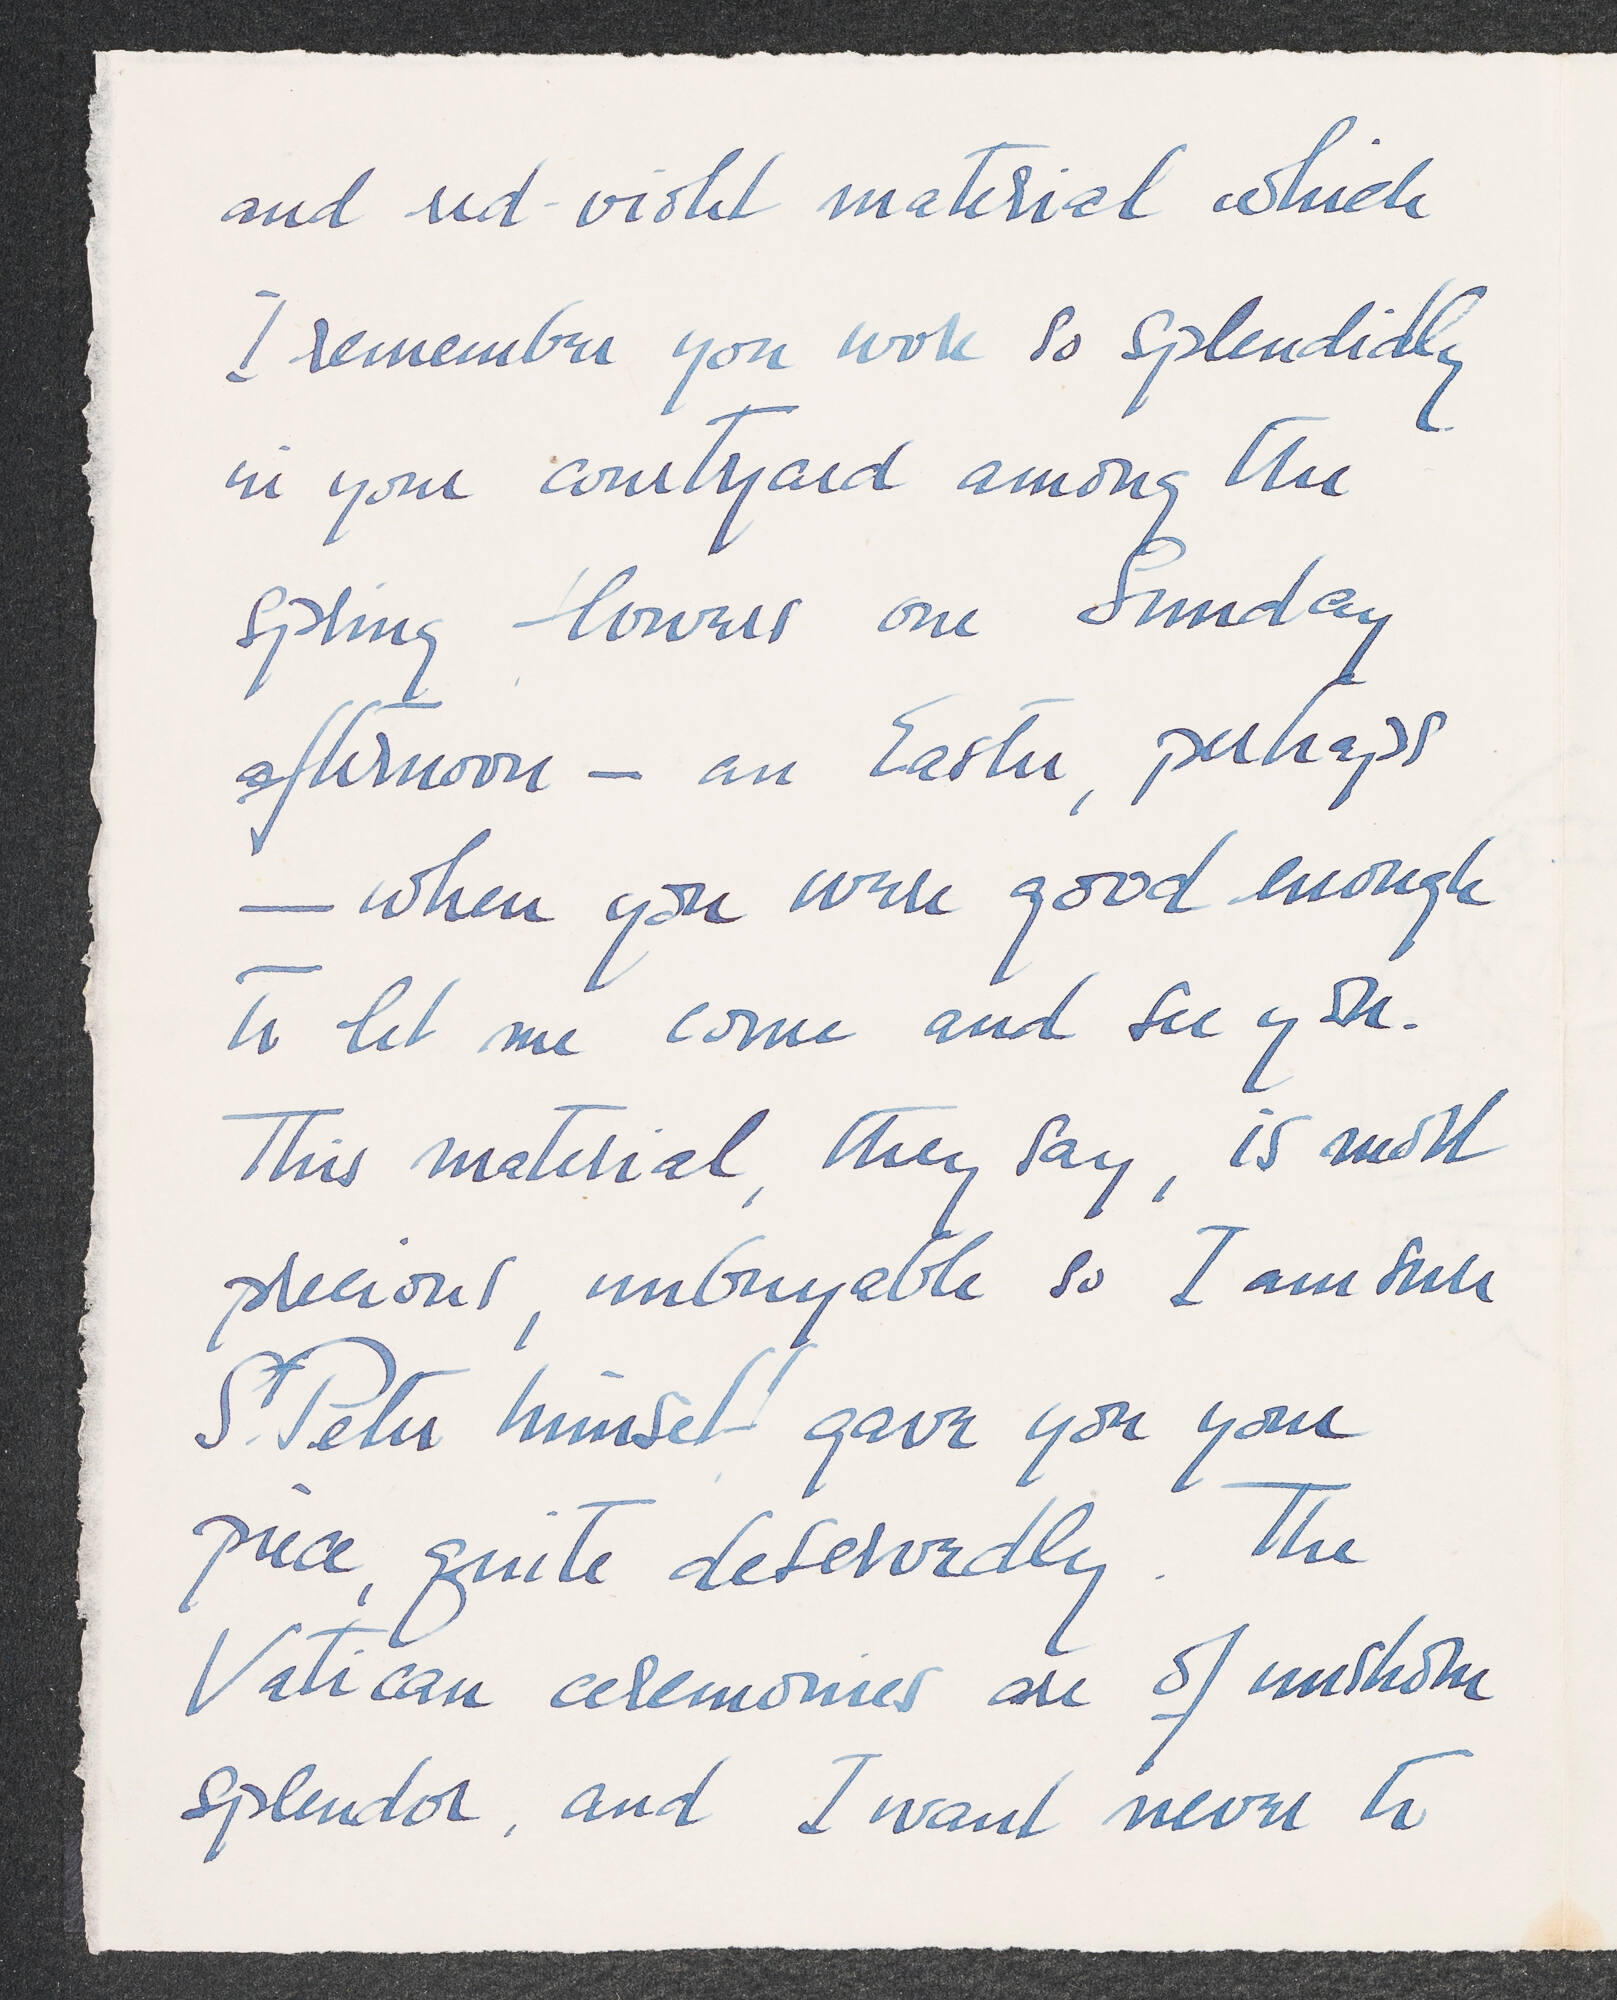 and red-violet material which
I remember you wore so splendidly
in your courtyard among the
spring flowers one Sunday
afternoon — an Easter, perhaps
— when you were good enough
to let me come and see you.
This material, they say, is most
precious, unbuyable so I am sure
St. Peter himself gave you your
piece, quite deservedly. The
Vatican ceremonies are of unshorn
splendor, and I want never to